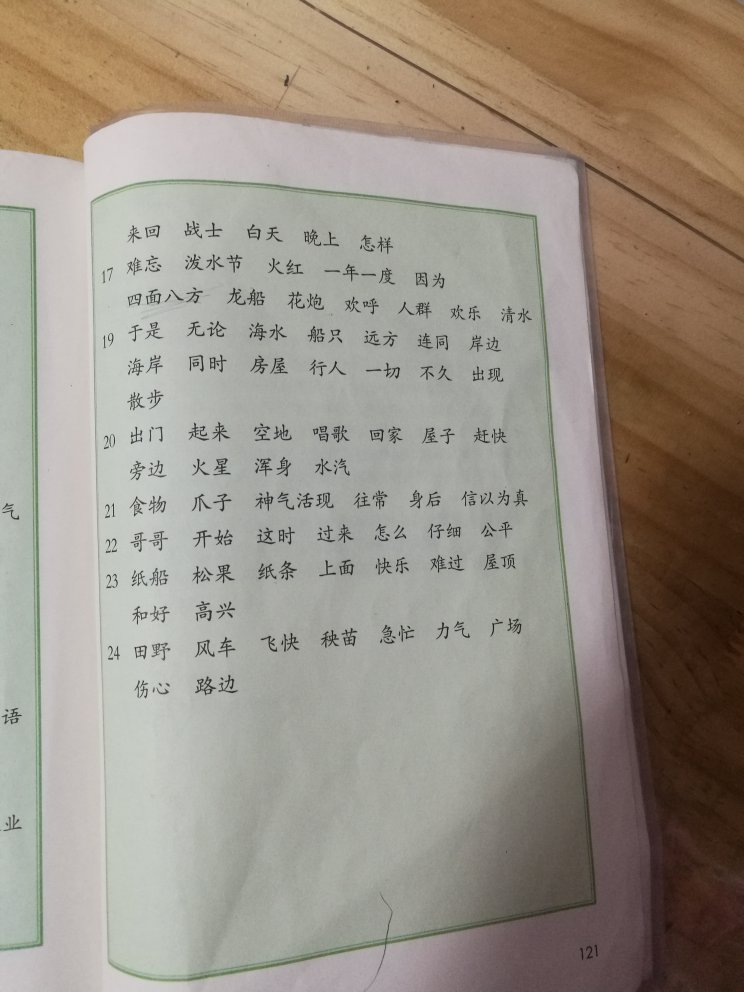 来回 战士 白天 晚上 怎样
17 难忘 泼水节 火红 一年一度 因为
四面八方 龙船 花炮 欢呼 人群 欢乐 清水
19 于是 无论 海水 船只 远方 连同 岸边
海岸 同时 房屋 行人 一切 不久 出现
散步
20 出门 起来 空地 唱歌 回家 屋子 赶快
旁边 火星 浑身 水汽
21 食物 爪子 神气活现 往常 身后 信以为真
22 哥哥 开始 这时 过来 怎么 仔细 公平
23 纸船 松果 纸条 上面 快乐 难过 屋顶
和好 高兴
24 田野 风车 飞快 秧苗 急忙 力气 广场
伤心 路边
121
气
语
业